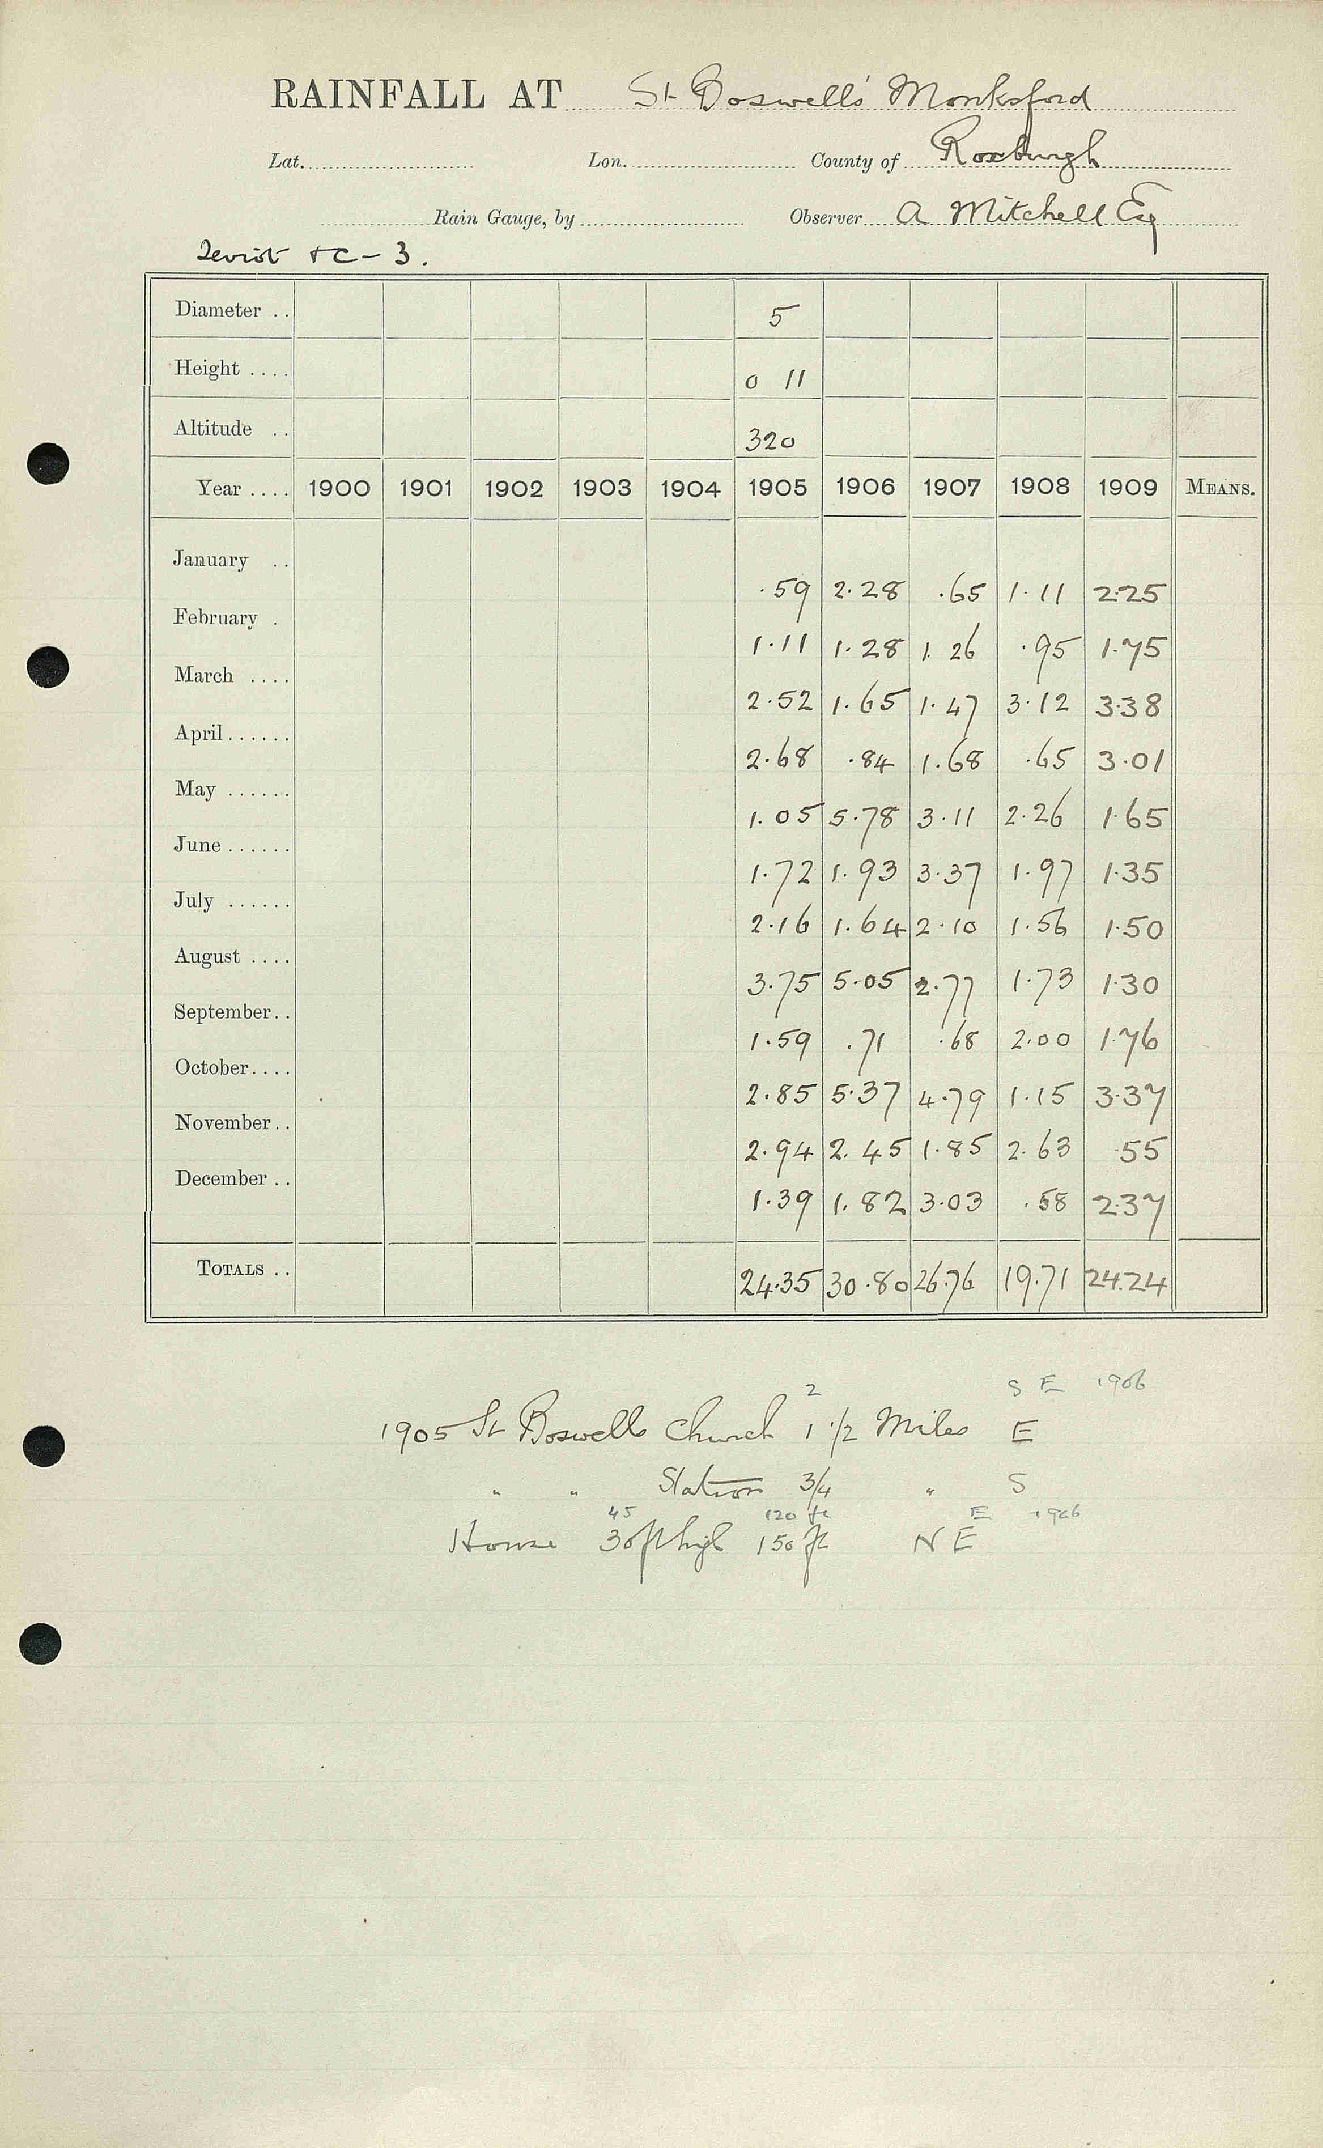 RAINFALL AT St Boswells Monksford
Lat. Lon. County of Roxburgh
Rain Gauge, by Observer A Mitchell Esq
Teviot &c - 3.
Diameter .. 5
Height .... 0 11
Altitude .. 320
Year .... 1900 1901 1902 1903 1904 1905 1906 1907 1908 1909 MEANS.
January .. .59 2.28 .65 1.11 2.25
February . 1.11 1.28 1.26 .95 1.75
March .... 2.52 1.65 1.47 3.12 3.38
April...... 2.68 .84 1.68 .65 3.01
May ...... 1.05 5.78 3.11 2.26 1.65
June ...... 1.72 1.93 3.37 1.97 1.35
July ...... 2.16 1.64 2.10 1.56 1.50
August .... 3.75 5.05 2.77 1.73 1.30
September.. 1.59 .71 .68 2.00 1.76
October.... 2.85 5.37 4.79 1.15 3.37
November.. 2.94 2.45 1.85 2.63 .55
December .. 1.39 1.82 3.03 .58 2.37
TOTALS .. 24.35 30.80 26.76 19.71 24.24
2 S E 1906
1905 St Boswells Church 1 1/2 Miles E
" " Station 3/4 " S
45 120 ft E 1906
House 30 ft high 150 ft N E